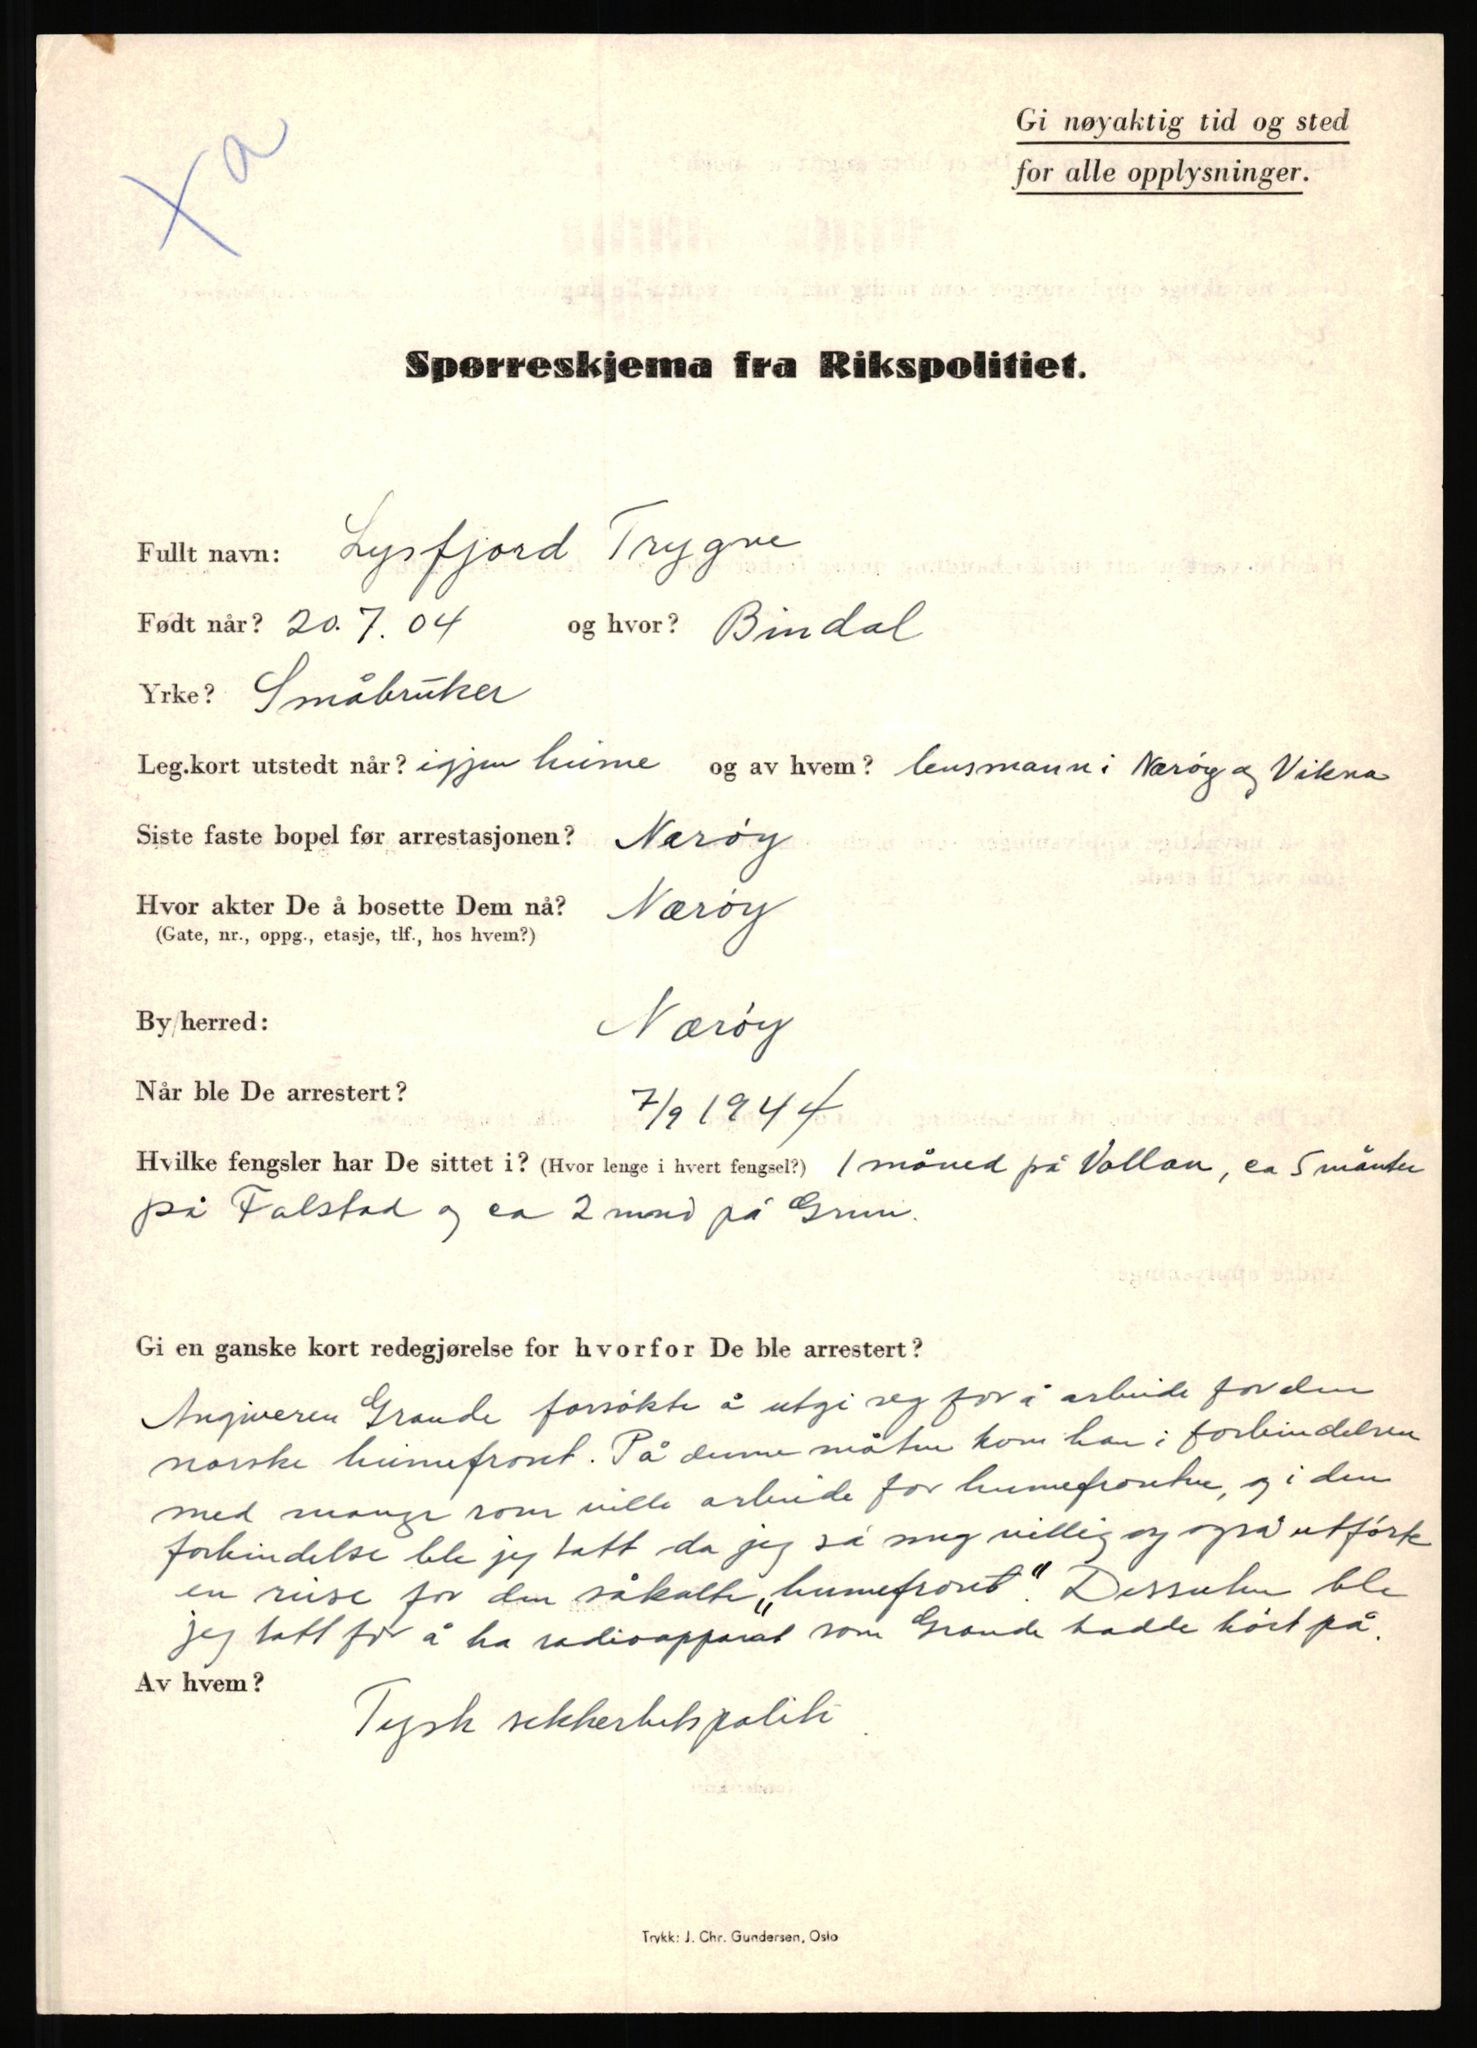 xa
Gi nøyaktig tid og sted
for alle opplysninger.
Spørreskjema fra Rikspolitiet.
Fullt navn: Lysfjord Trygve
Født når? 20.7.04 og hvor? Bindal
Yrke? Småbruker
Leg.kort utstedt når? igjen hime og av hvem? lensmann i Nærøy og Vikna
Siste faste bopel før arrestasjonen? Nærøy
Hvor akter De å bosette Dem nå? Nærøy
(Gate, nr., oppg., etasje, tlf., hos hvem?)
By/herred: Nærøy
Når ble De arrestert? 7/9 1944
Hvilke fengsler har De sittet i? (Hvor lenge i hvert fengsel?) 1 måned på Vollan, ca 5 månter
på Falstad og ca 2 mnd på Grini.
Gi en ganske kort redegjørelse for hvorfor De ble arrestert?
Angiveren Grande forsökte å utgi seg for å arbeide for den
norske himefront. På denne måten kom han i forbindelsen
med mange som ville arbeide for himefronten, og i den
forbindelse ble jeg tatt da jeg sa meg villig og også utförte
en reise for den såkalte „himefront". Dessuten ble
jeg tatt for å ha radioapparat som Grande hadde hört på.
Av hvem? Tysk sikkerhetspoliti
Trykk: J. Chr. Gundersen, Oslo